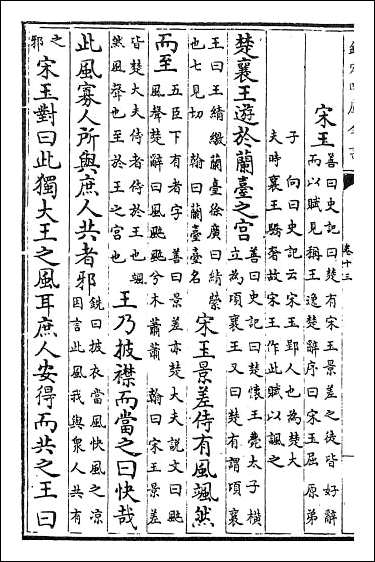 欽定四庫全書
卷十三
宋玉
善曰史記曰楚有宋玉景差之徒皆好辭
而以賦見稱王逸楚辭序曰宋玉屈原弟
子 向曰史記云宋玉郢人也為楚大
夫時襄王驕奢故宋玉作此賦以諷之
楚襄王遊於蘭臺之宮
善曰史記曰楚懷王薨太子橫
立為頃襄王又曰楚有謂頃襄
王曰王綪繳蘭臺徐廣曰綪縈
也七見切 翰曰蘭臺臺名
宋玉景差侍有風颯然
而至
五臣下有者字 善曰景差亦楚大夫說文曰颯
風聲楚辭曰風颯颯兮木蕭蕭 翰曰宋玉景差
皆楚大夫侍者侍於王也颯
然風聲也至於王之宫也
王乃披襟而當之曰快哉
此風寡人所與庶人共者邪
銑曰披衣當風快風之凉
因言此風我與衆人共有
之
邪
宋玉對曰此獨大王之風耳庶人安得而共之王曰